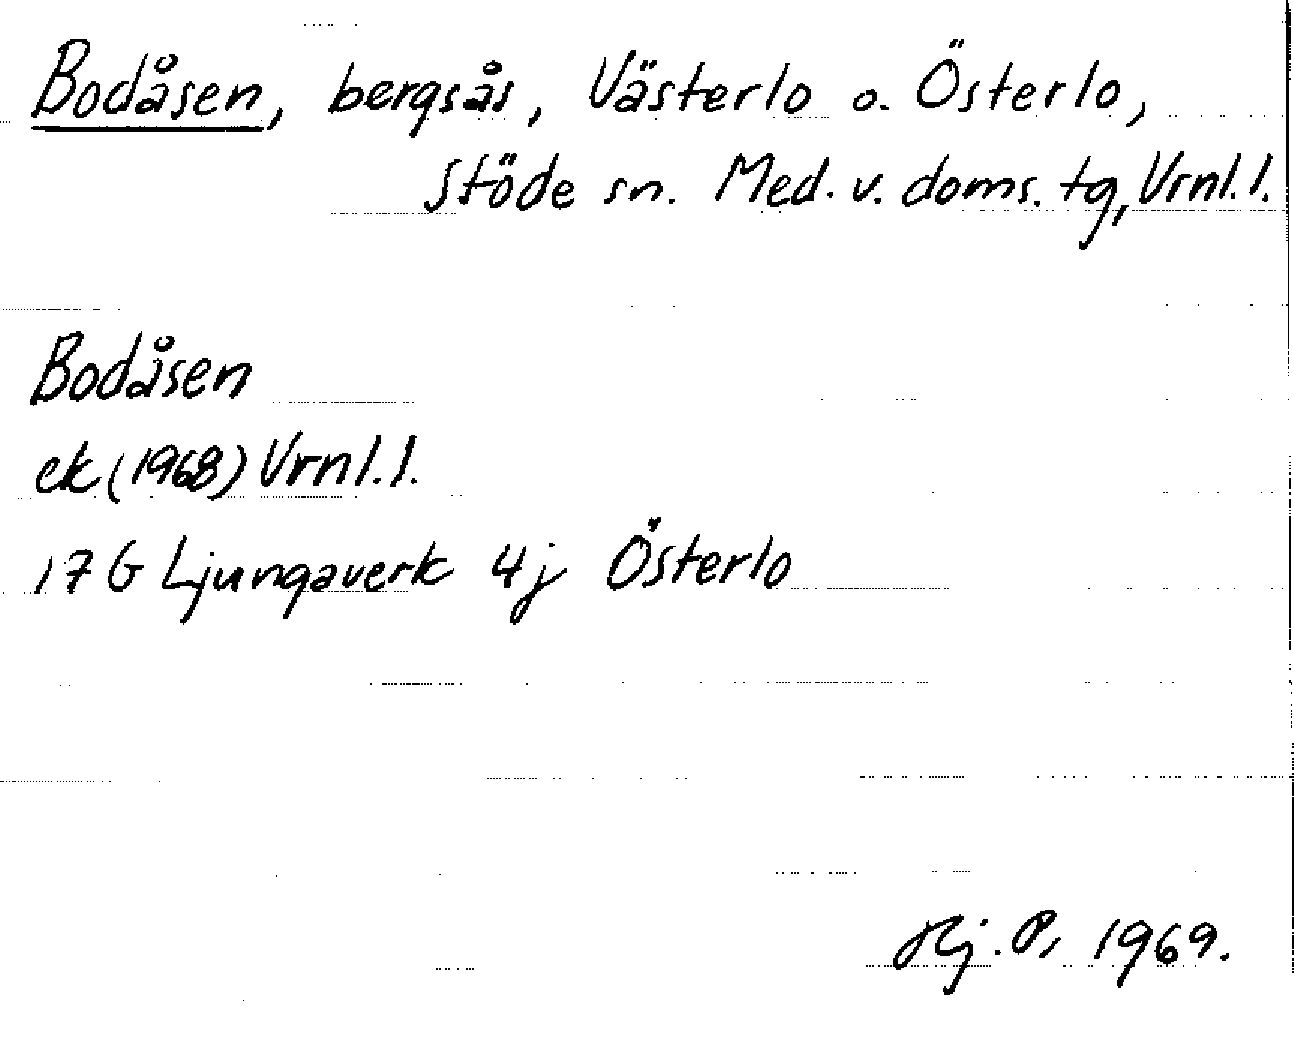 Bodåsen, bergsås, Västerlo o. Österlo,
Stöde sn. Med. v. doms. tg, Vrnl. l.
Bodåsen
ek (1968) Vrnl. l.
17 G Ljungaverk 4j Österlo
Hj. P, 1969.